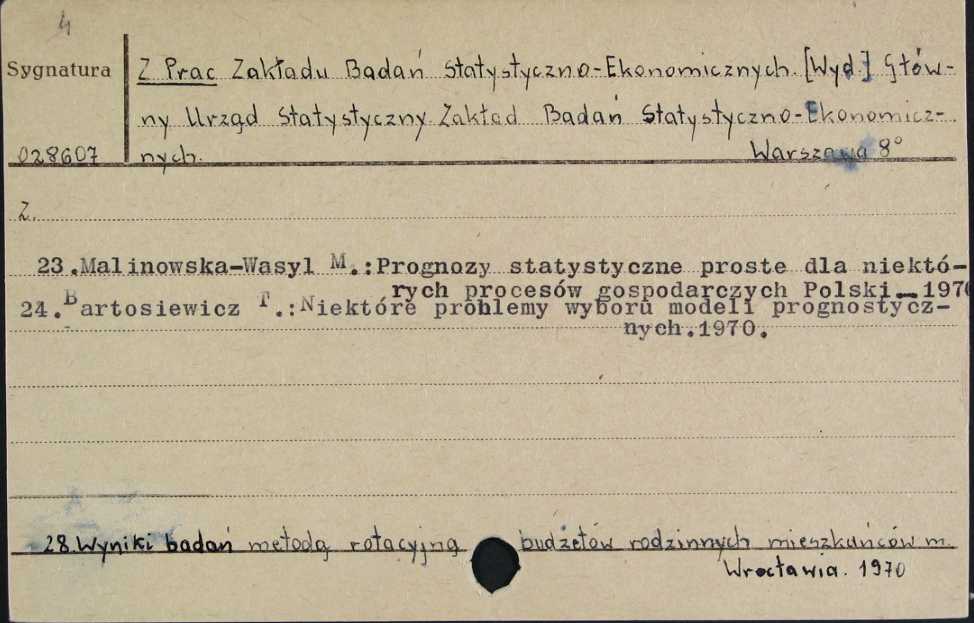 4
Sygnatura
Z Prac Zakładu Badań Statystyczno-Ekonomicznych. [Wyd.] Głów-
ny Urząd Statystyczny. Zakład Badań Statystyczno-Ekonomicz-
028607
nych.
Warszawa 8°
Z.
23.Malinowska-Wasyl M.:Prognozy statystyczne proste dla niektó-
rych procesów gospodarczych Polski. 1970
24.Bartosiewicz T.:Niektóre problemy wyboru modeli prognostycz-
nych.1970.
28.Wyniki badań metodą rotacyjną budżetów rodzinnych mieszkańców m.
Wrocławia. 1970